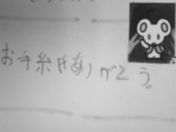 お手紙ありがとう。